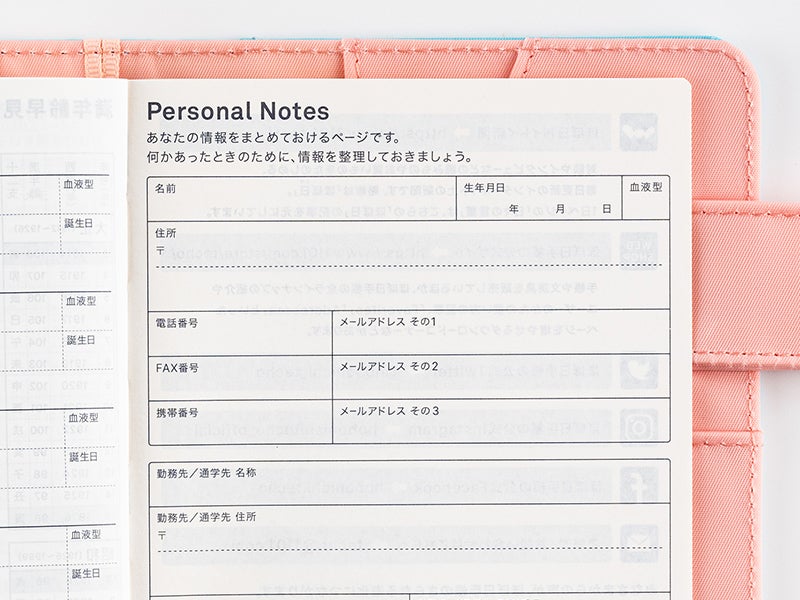 血液型
誕生日
血液型
誕生日
血液型
誕生日
血液型
誕生日
Personal Notes
あなたの情報をまとめておけるページです。
何かあったときのために、情報を整理しておきましょう。
名前 生年月日 血液型
年 月 日
住所
〒
電話番号 メールアドレス その1
FAX番号 メールアドレス その2
携帯番号 メールアドレス その3
勤務先／通学先 名称
勤務先／通学先 住所
〒